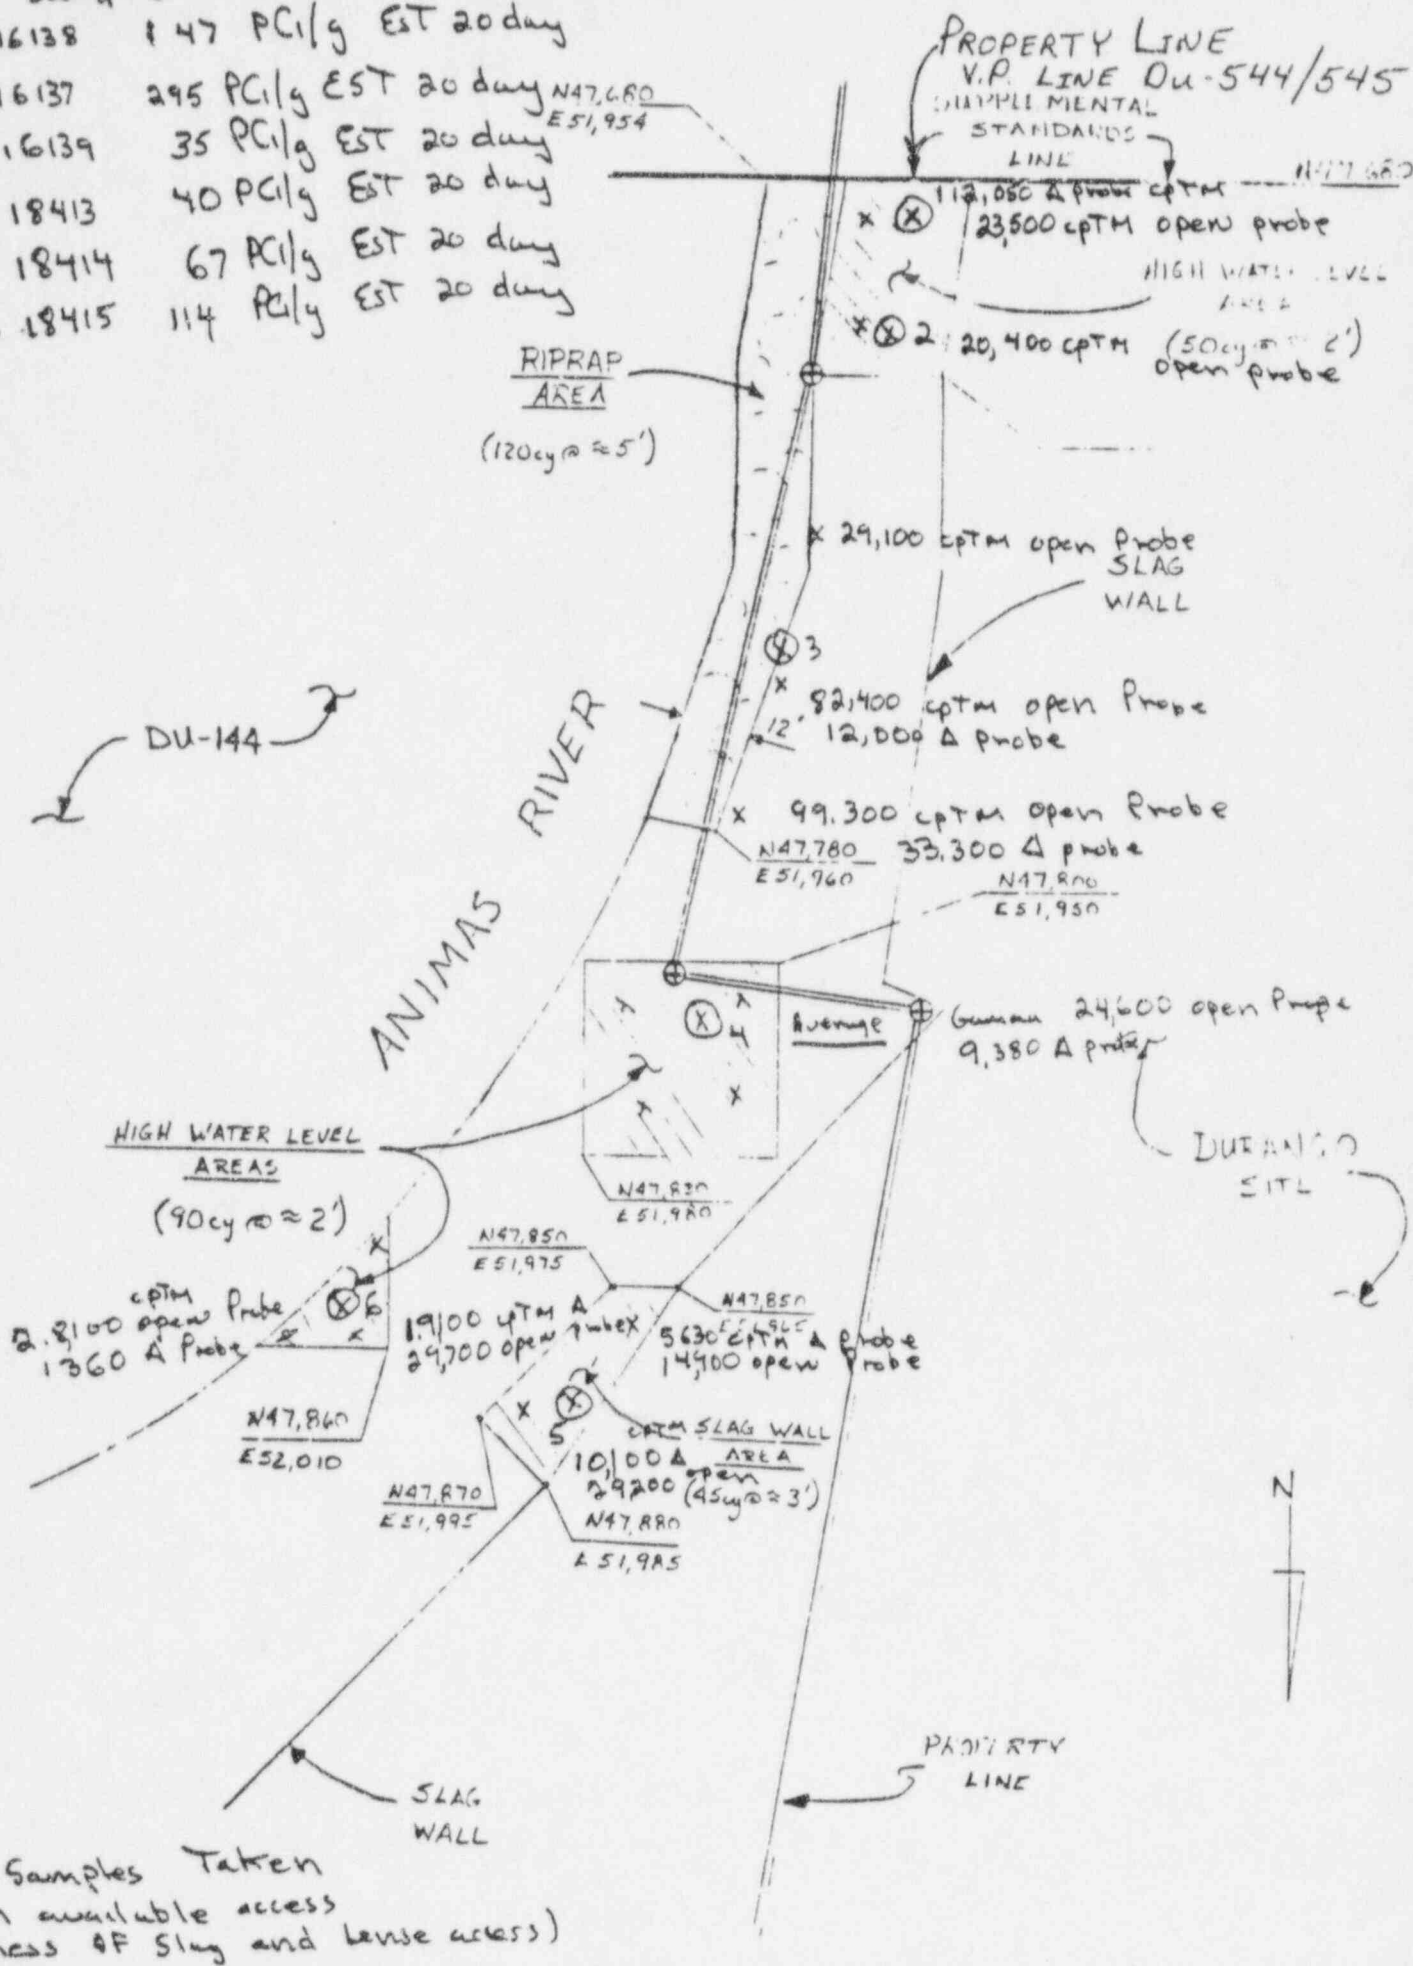 16138 147 PCi/g EST 20 day
16137 295 PCi/g EST 20 day
16139 35 PCi/g EST 20 day
18413 40 PCi/g EST 20 day
18414 67 PCi/g EST 20 day
18415 114 PCi/g EST 20 day
N47,680
E51,954
PROPERTY LINE
V.P. LINE Du-544/545
SUPPLEMENTAL
STANDARDS
LINE
N47,680
112,050 Δ probe cpTM
23,500 cpTM open probe
HIGH WATER LEVEL
AREA
2 20,400 cpTM (50cy @ ≈ 2')
open probe
RIPRAP
AREA
(120cy @ ≈ 5')
29,100 cpTM open Probe
SLAG
WALL
3
82,400 cpTM open Probe
12' 12,000 Δ probe
DU-144
ANIMAS RIVER
99.300 cpTM open Probe
33.300 Δ probe
N47,780
E51,960
N47,800
E51,950
4
Average
Gamma 24,600 open Probe
9,380 Δ probe
HIGH WATER LEVEL
AREAS
(90cy @ ≈ 2')
DURANGO
SITE
N47,830
E51,980
N47,850
E51,975
N47,850
E51,965
cpTM
2.8100 open Probe
1360 Δ Probe
6
19100 cpTM Δ
29,700 open probe
5630 cpTM Δ Probe
14,900 open Probe
N47,860
E52,010
5
cpTM SLAG WALL
AREA
10,100 Δ
open
29200 (45cy @ ≈ 3')
N47,870
E51,995
N47,880
E51,985
N
PROPERTY
LINE
SLAG
WALL
Samples Taken
available access
of Slag and dense access)